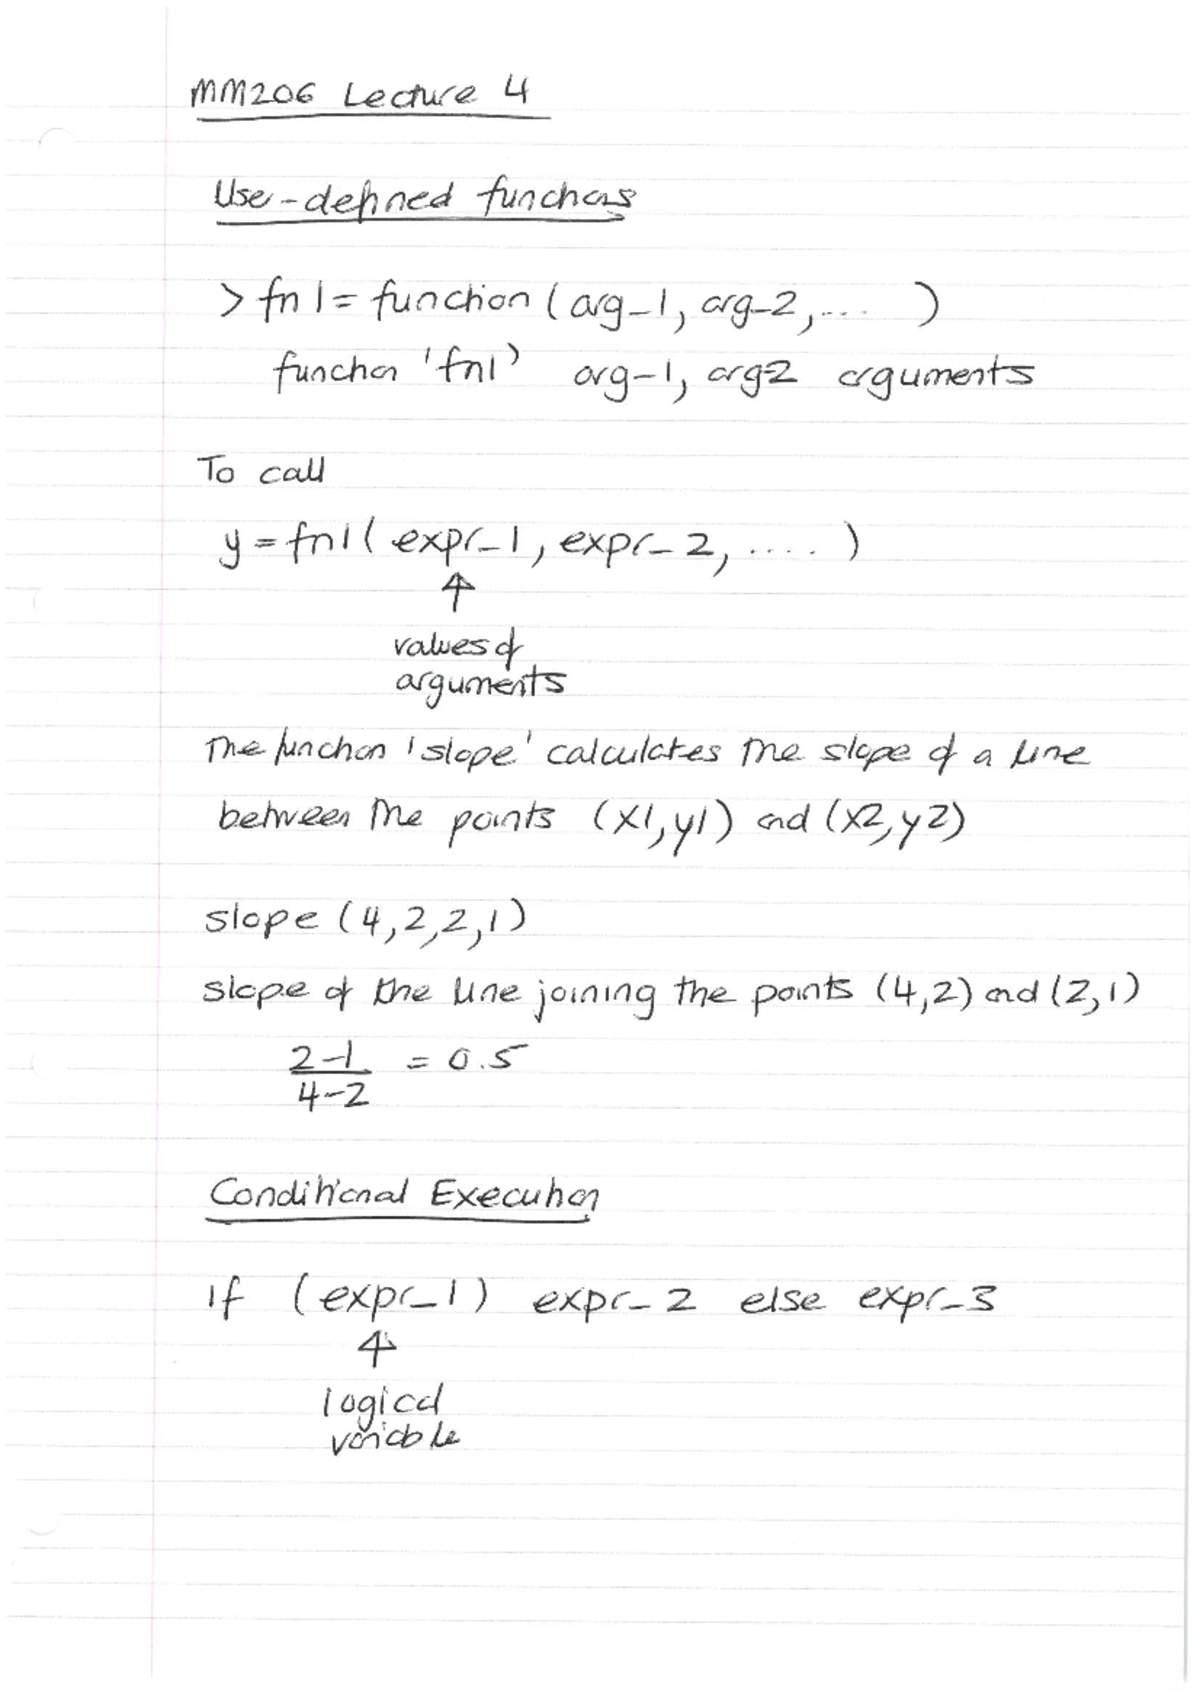 MM206 Lecture 4
Use-defined functions
> fn1 = function (arg_1, arg_2, ... )
function 'fn1' arg_1, arg_2 arguments
To call
y = fn1( expr_1, expr_2, .... )
↑
values of
arguments
The function 'slope' calculates the slope of a line
between the points (x1,y1) and (x2,y2)
slope (4,2,2,1)
slope of the line joining the points (4,2) and (2,1)
2-1 = 0.5
4-2
Conditional Execution
if (expr_1) expr_2 else expr_3
↑
logical
variable